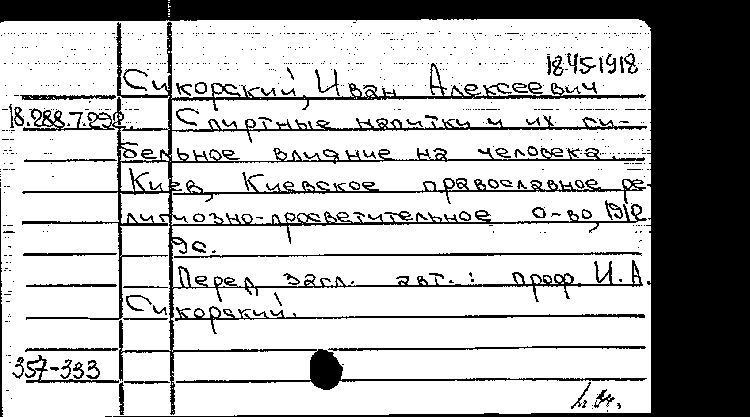 1845-1918
Сикорский, Иван Алексеевич
18.288.7.292. Спиртные напитки и их ги-
бельное влияние на человека.
Киев, Киевское православное ре-
лигиозно-просветительное о-во, 1912
9с.
Перед загл. авт.: проф. И. А.
Сикорский.
357-333